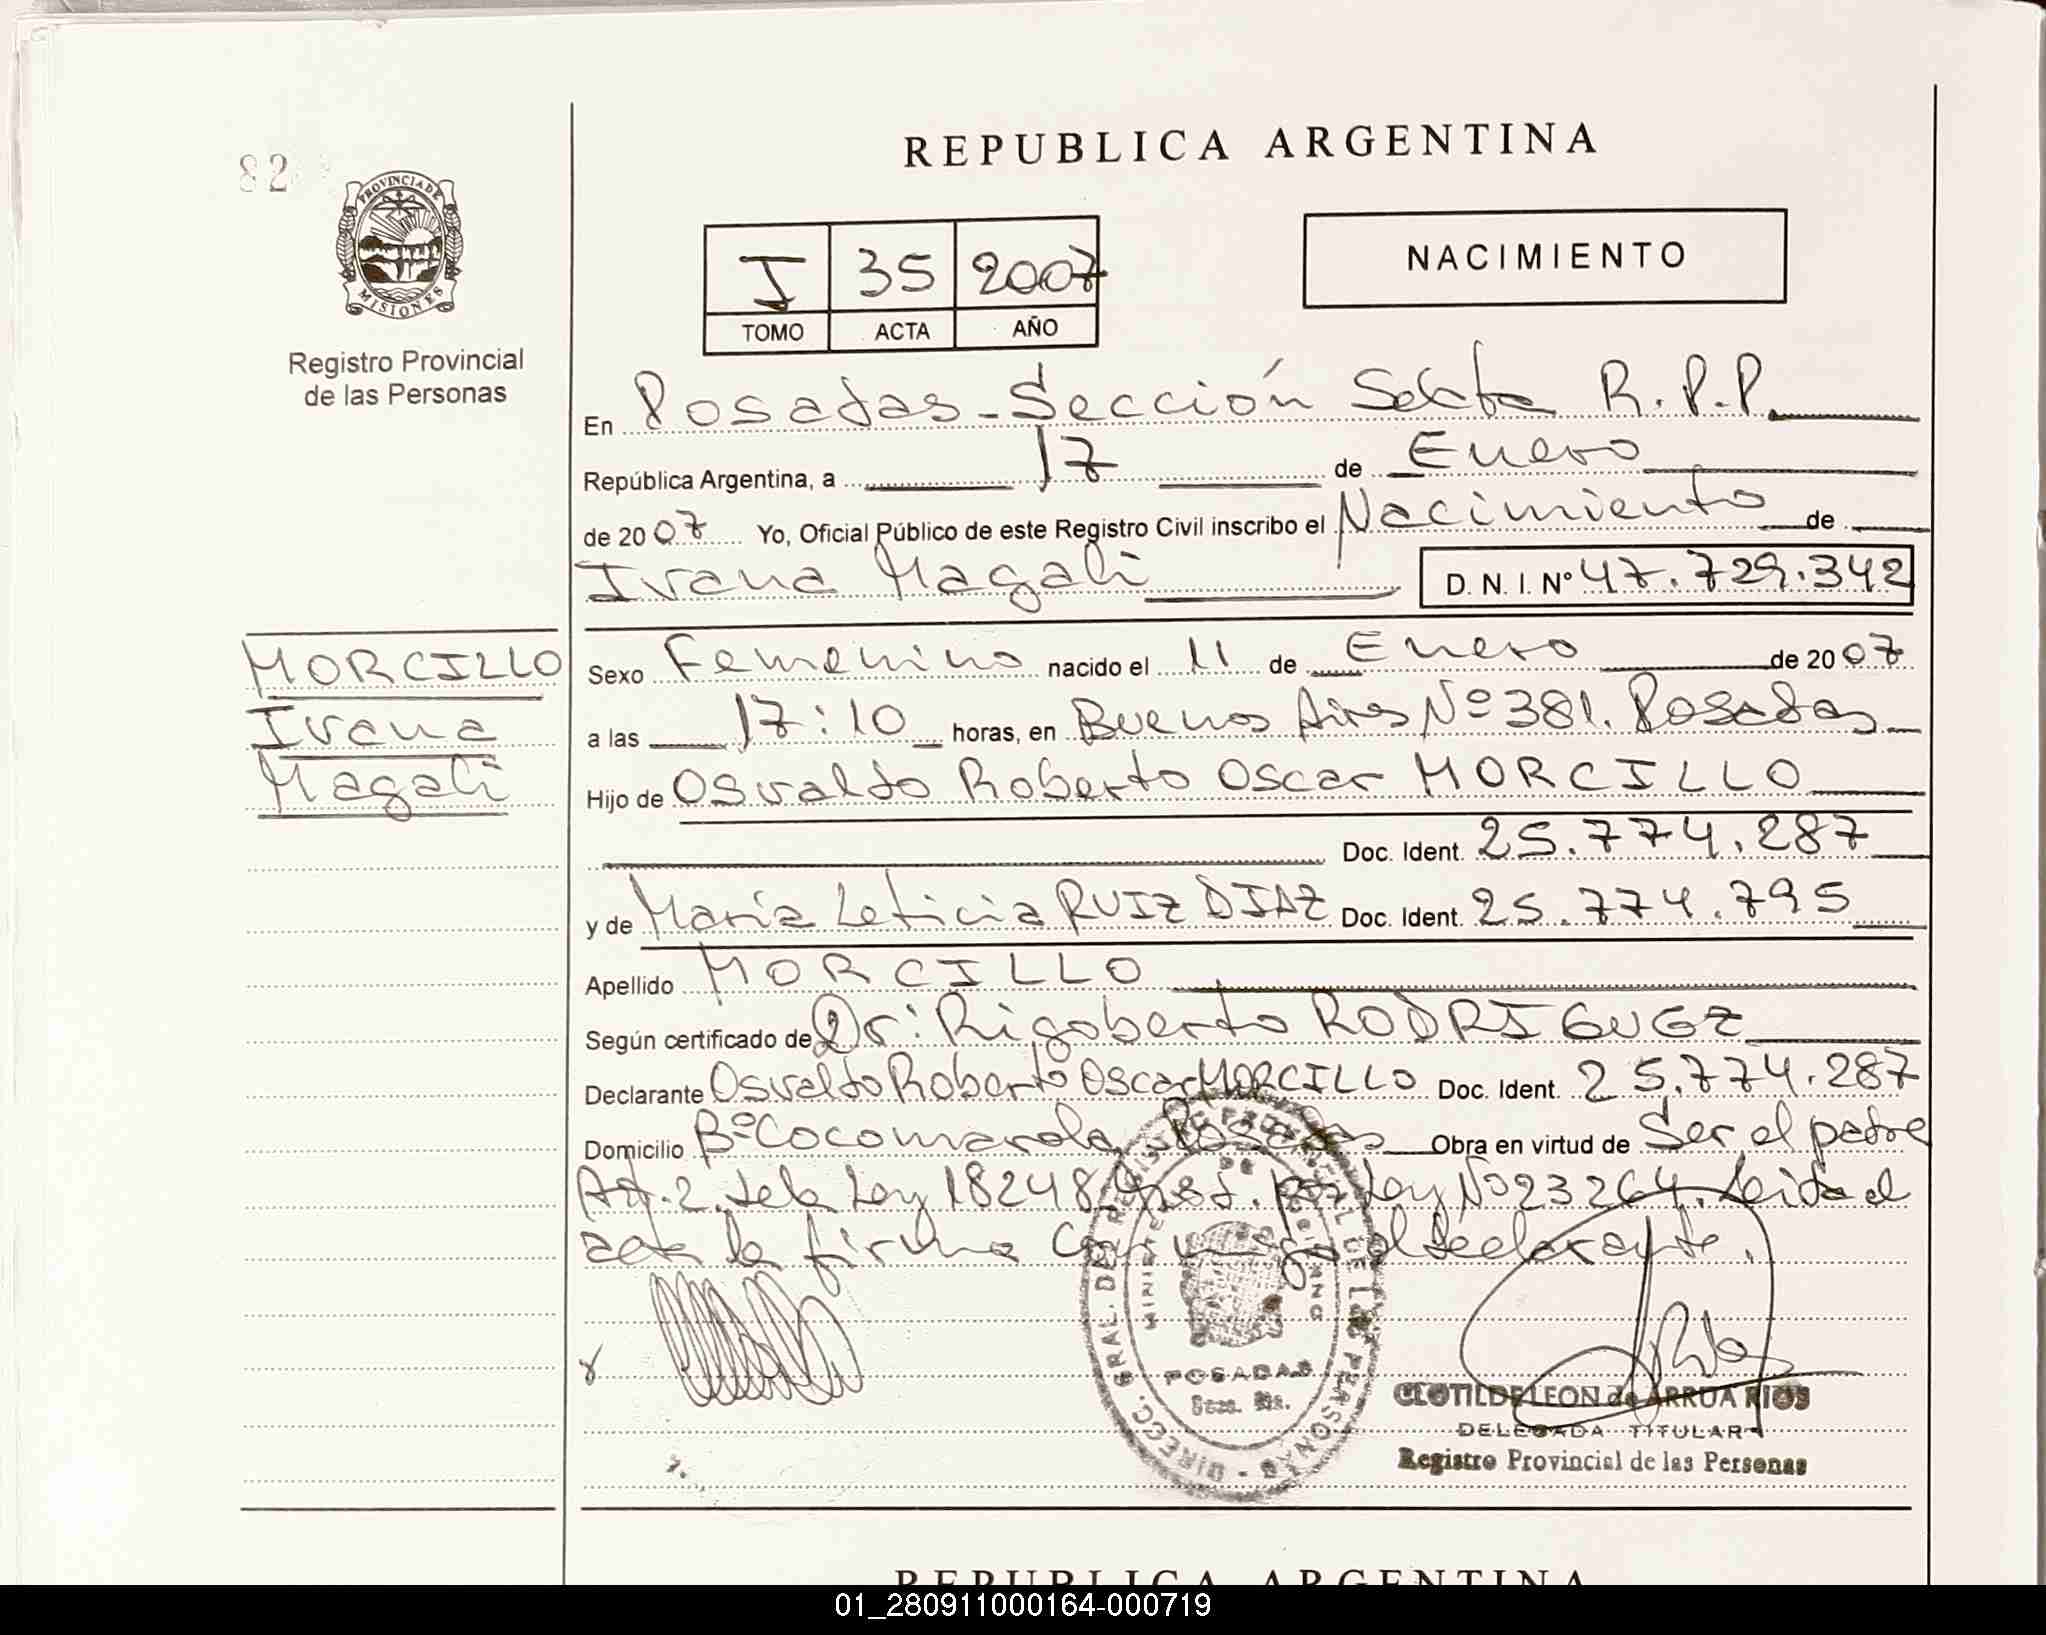 REPUBLICA ARGENTINA
82
PROVINCIA DE
MISIONES
Registro Provincial
de las Personas
I 35 2007
TOMO ACTA AÑO
NACIMIENTO
En Posadas - Sección Sexta R.P.P.
República Argentina, a 17 de Enero
de 2007 Yo, Oficial Público de este Registro Civil inscribo el Nacimiento de
Ivana Magali D.N.I. Nº 47.729.342
MORCILLO
Ivana
Magali
Sexo Femenino nacido el 11 de Enero de 2007
a las 17:10 horas, en Buenos Aires Nº 381. Posadas
Hijo de Osvaldo Roberto Oscar MORCILLO
Doc. Ident. 25.774.287
y de María Leticia RUIZ DIAZ Doc. Ident. 25.774.795
Apellido MORCILLO
Según certificado de Dr: Rigoberto RODRIGUEZ
Declarante Osvaldo Roberto Oscar MORCILLO Doc. Ident. 25.774.287
Domicilio Bº Cocomarola Posadas Obra en virtud de Ser el padre
Art. 2 de la Ley 18248 Ley Nº 23264. Leida el
acta la firma conmigo el declarante.
DIRECC. GRAL. DEL REGISTRO PROVINCIAL DE LAS PERSONAS
POSADAS
CLOTILDE LEON de ARRUA RIOS
DELEGADA TITULAR
Registro Provincial de las Personas
REPUBLICA ARGENTINA
01_280911000164-000719